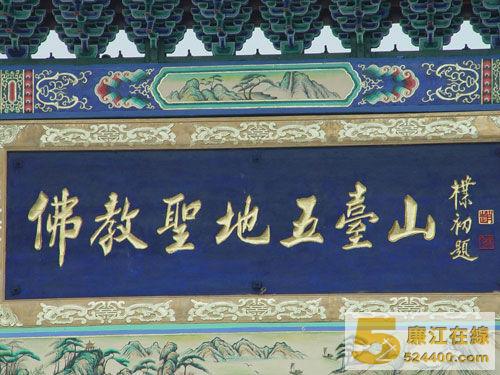 佛教聖地五臺山
樸初題
5 廉江在線
524400.com